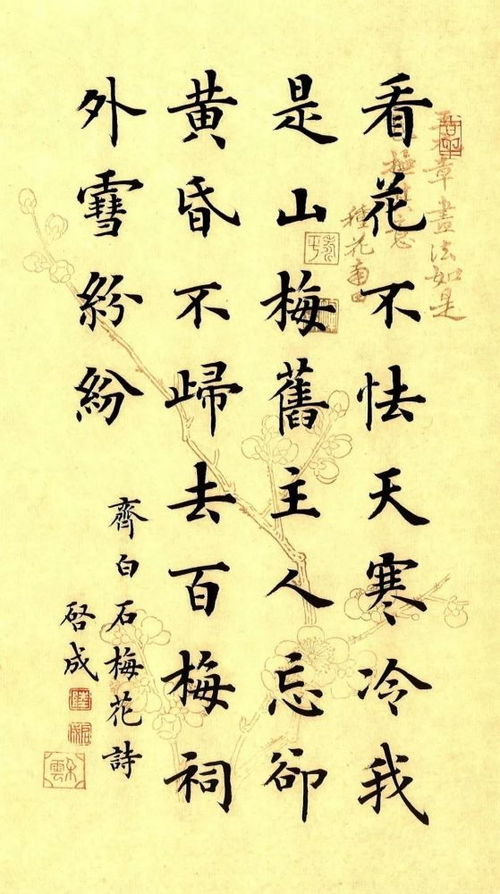 看花不怯天寒冷我
是山梅舊主人忘卻
黄昏不歸去百梅祠
外雪紛紛
齊白石梅花詩
啓成